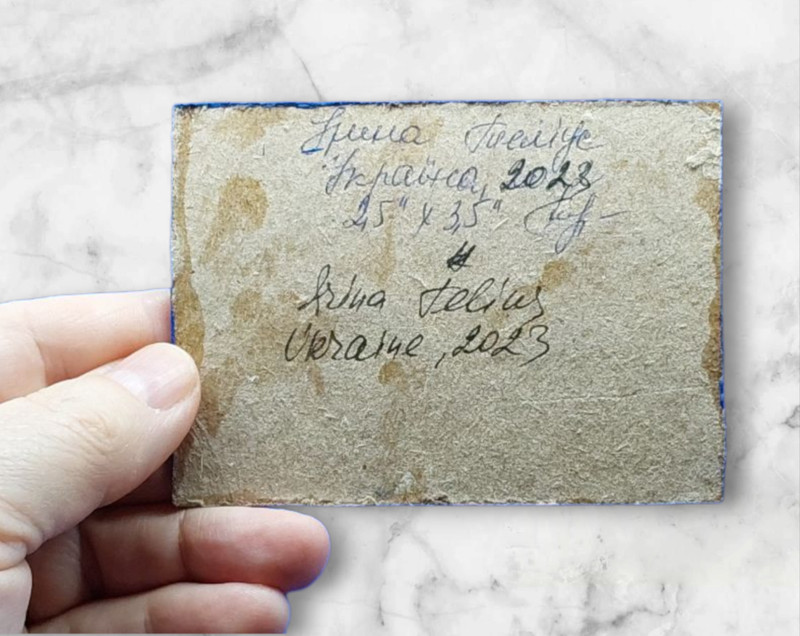 Ірина Теліус
Україна, 2023
2,5" x 3,5"
Irina Telius
Ukraine, 2023